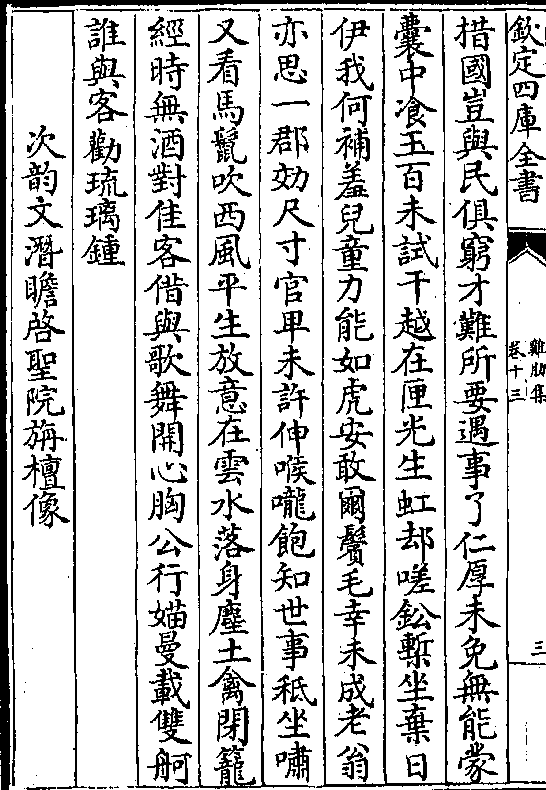 欽定四庫全書
雞肋集
卷十三
三
措國豈與民俱窮才難所要遇事了仁厚未免無能蒙
囊中飡玉百未試干越在匣光生虹却嗟鈆槧坐棄日
伊我何補羞兒童力能如虎安敢爾鬢毛幸未成老翁
亦思一郡效尺寸官卑未許伸喉嚨飽知世事秖坐嘯
又看馬鬛吹西風平生放意在雲水落身塵土禽閉籠
經時無酒對佳客偕與歌舞開心胸公行婥曼載雙舸
誰與客勸琉璃鍾
次韵文潛瞻啓聖院旃檀像